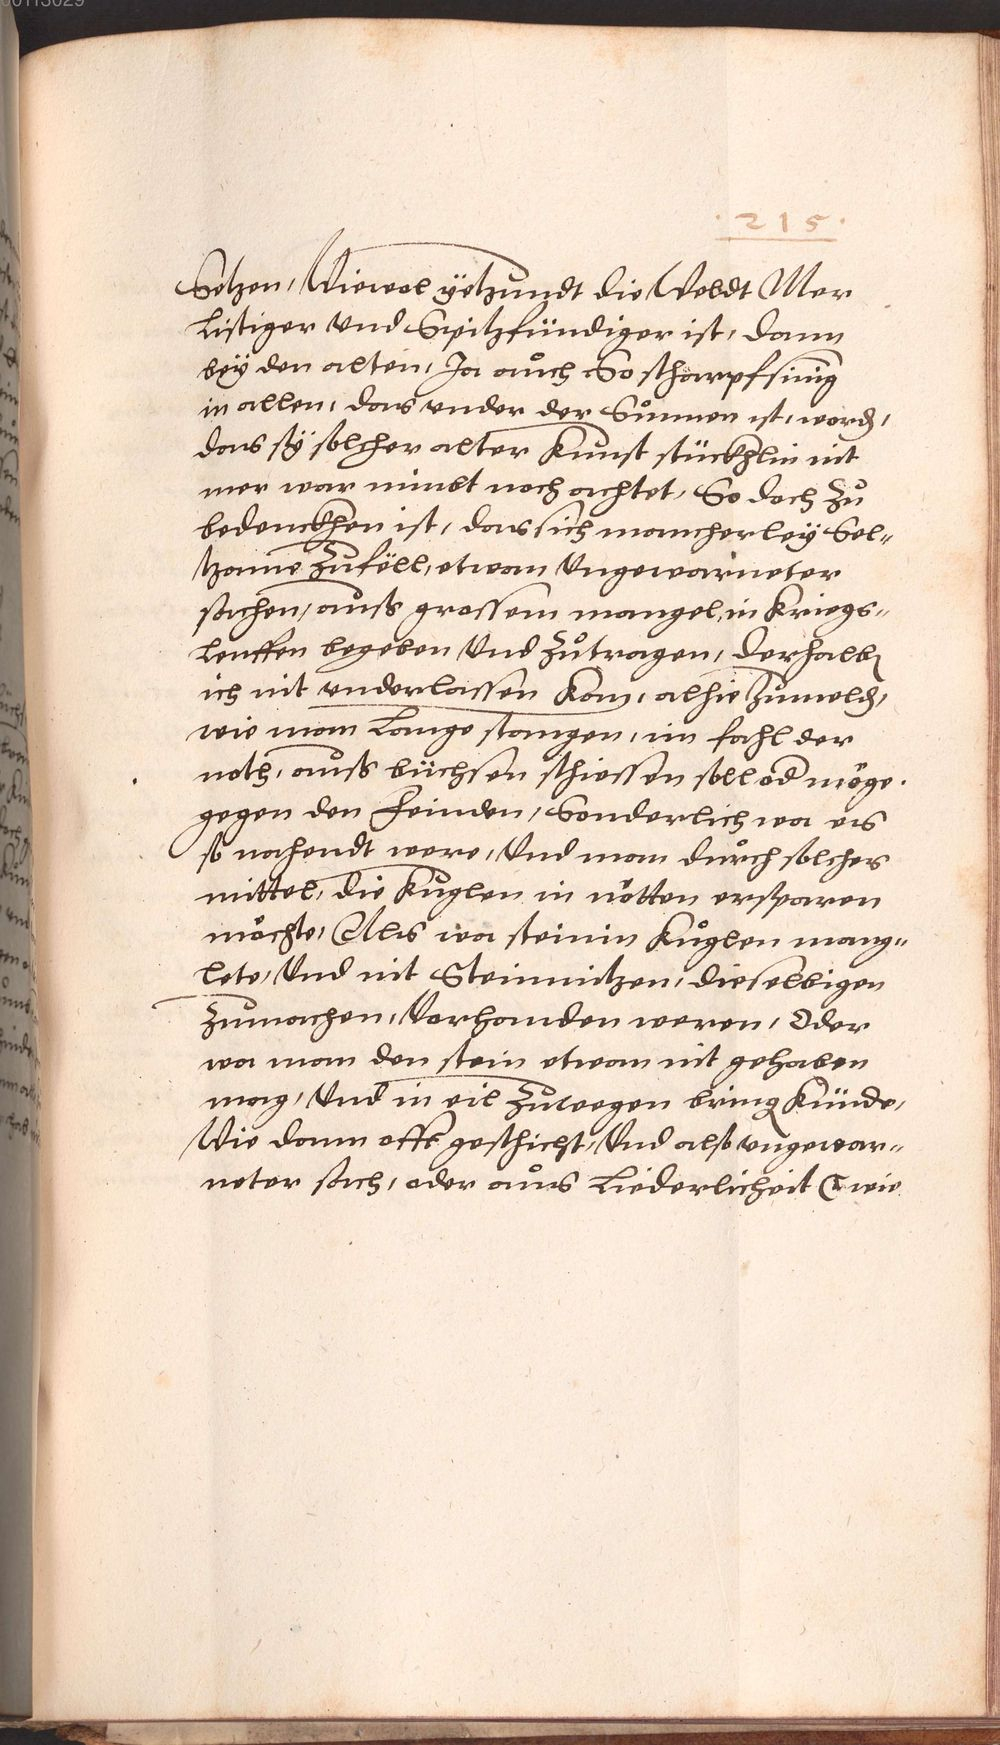 ·215·
Setzen, Wiewol yetzundt die Weldt Mer
Listiger und Spitzfündiger ist, dann
bey den alten, Ja aůch So scharpfsinig
in allen, das under der Sůnnen ist, word,
das sÿ solcher alter Kunst stückhlin nit
mer war nimbt noch achtet, So doch Zů
bedenckhen ist, das sich mancherleÿ Sel-
tzame Zufëll, etwan Ungewarneter
sachen, auß grossem mangel, in Kriegs-
leuffen begeben Und Zůtragen, derhalb
ich nit underlassen Kan, alhie Zumeld,
wie man Lange stangen, im fahl der
noth, auß büchsen schiessen soll od möge
gegen den Feinden, Sonderlich wa es
so nahendt were, Und man důrch solches
mittel, die Kuglen in nötten ersparen
möchte, Als wa steinin Kůglen mang-
lete, Und nit Steinmitzen, dieselbigen
Zumachen, Vorhanden weren, Oder
wa man den stein etwan nit gehaben
mag, Und in eil Zuwegen bring Künde,
Wie dann offt geschicht, Und also ungewar-
neter sach, oder aůs Liederlicheit wie